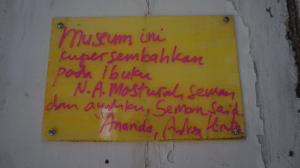 Museum ini
kupersembahkan
pada Ibuku
N.A. Masturah Seman
dan ayahku, Seman Said.
Ananda,